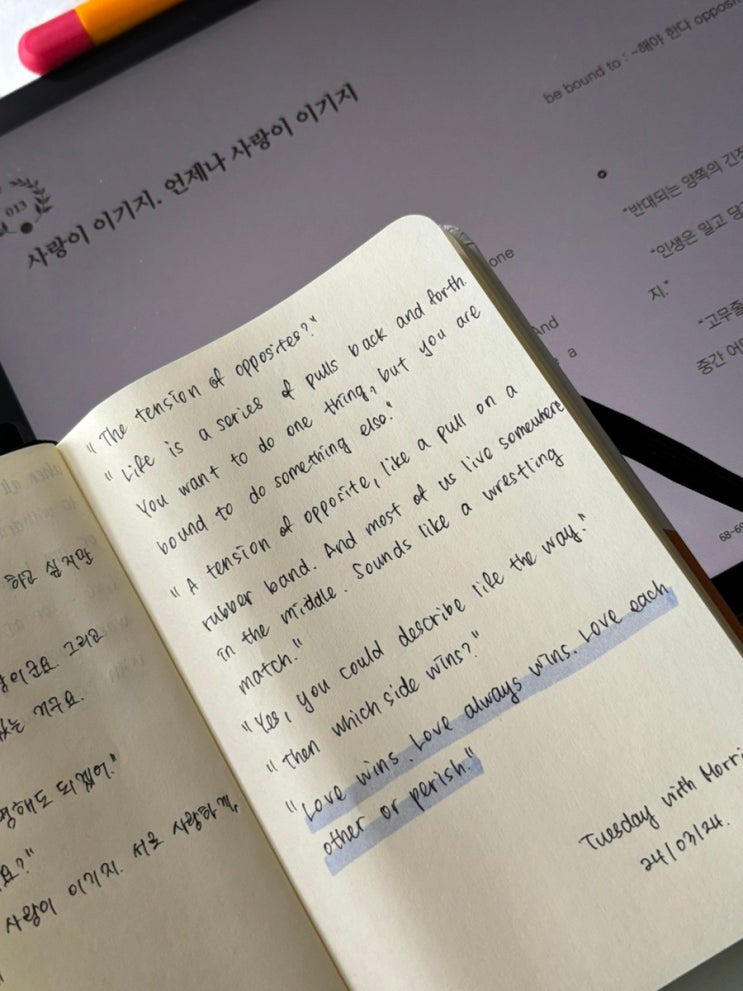 013
사랑이 이기지. 언제나 사랑이 이기지
be bound to : ~해야 한다 opposi
"반대되는 양쪽의 긴장
"인생은 밀고 당
지."
"고무줄
중간 어
one
And
a
68-69
"The tension of opposites?"
"Life is a series of pulls back and forth.
You want to do one thing, but you are
bound to do something else."
"A tension of opposite, like a pull on a
rubber band. And most of us live somewhere
in the middle. Sounds like a wrestling
match."
"Yes, you could describe life the way."
"Then which side wins?"
"Love wins. Love always wins. Love each
other or perish."
Tuesday with Morri
24/03/24.
하고 싶지만
이군요. 그리고
있는 거구요.
명해도 되겠어."
요?"
사랑이 이기지. 서로 사랑하게,